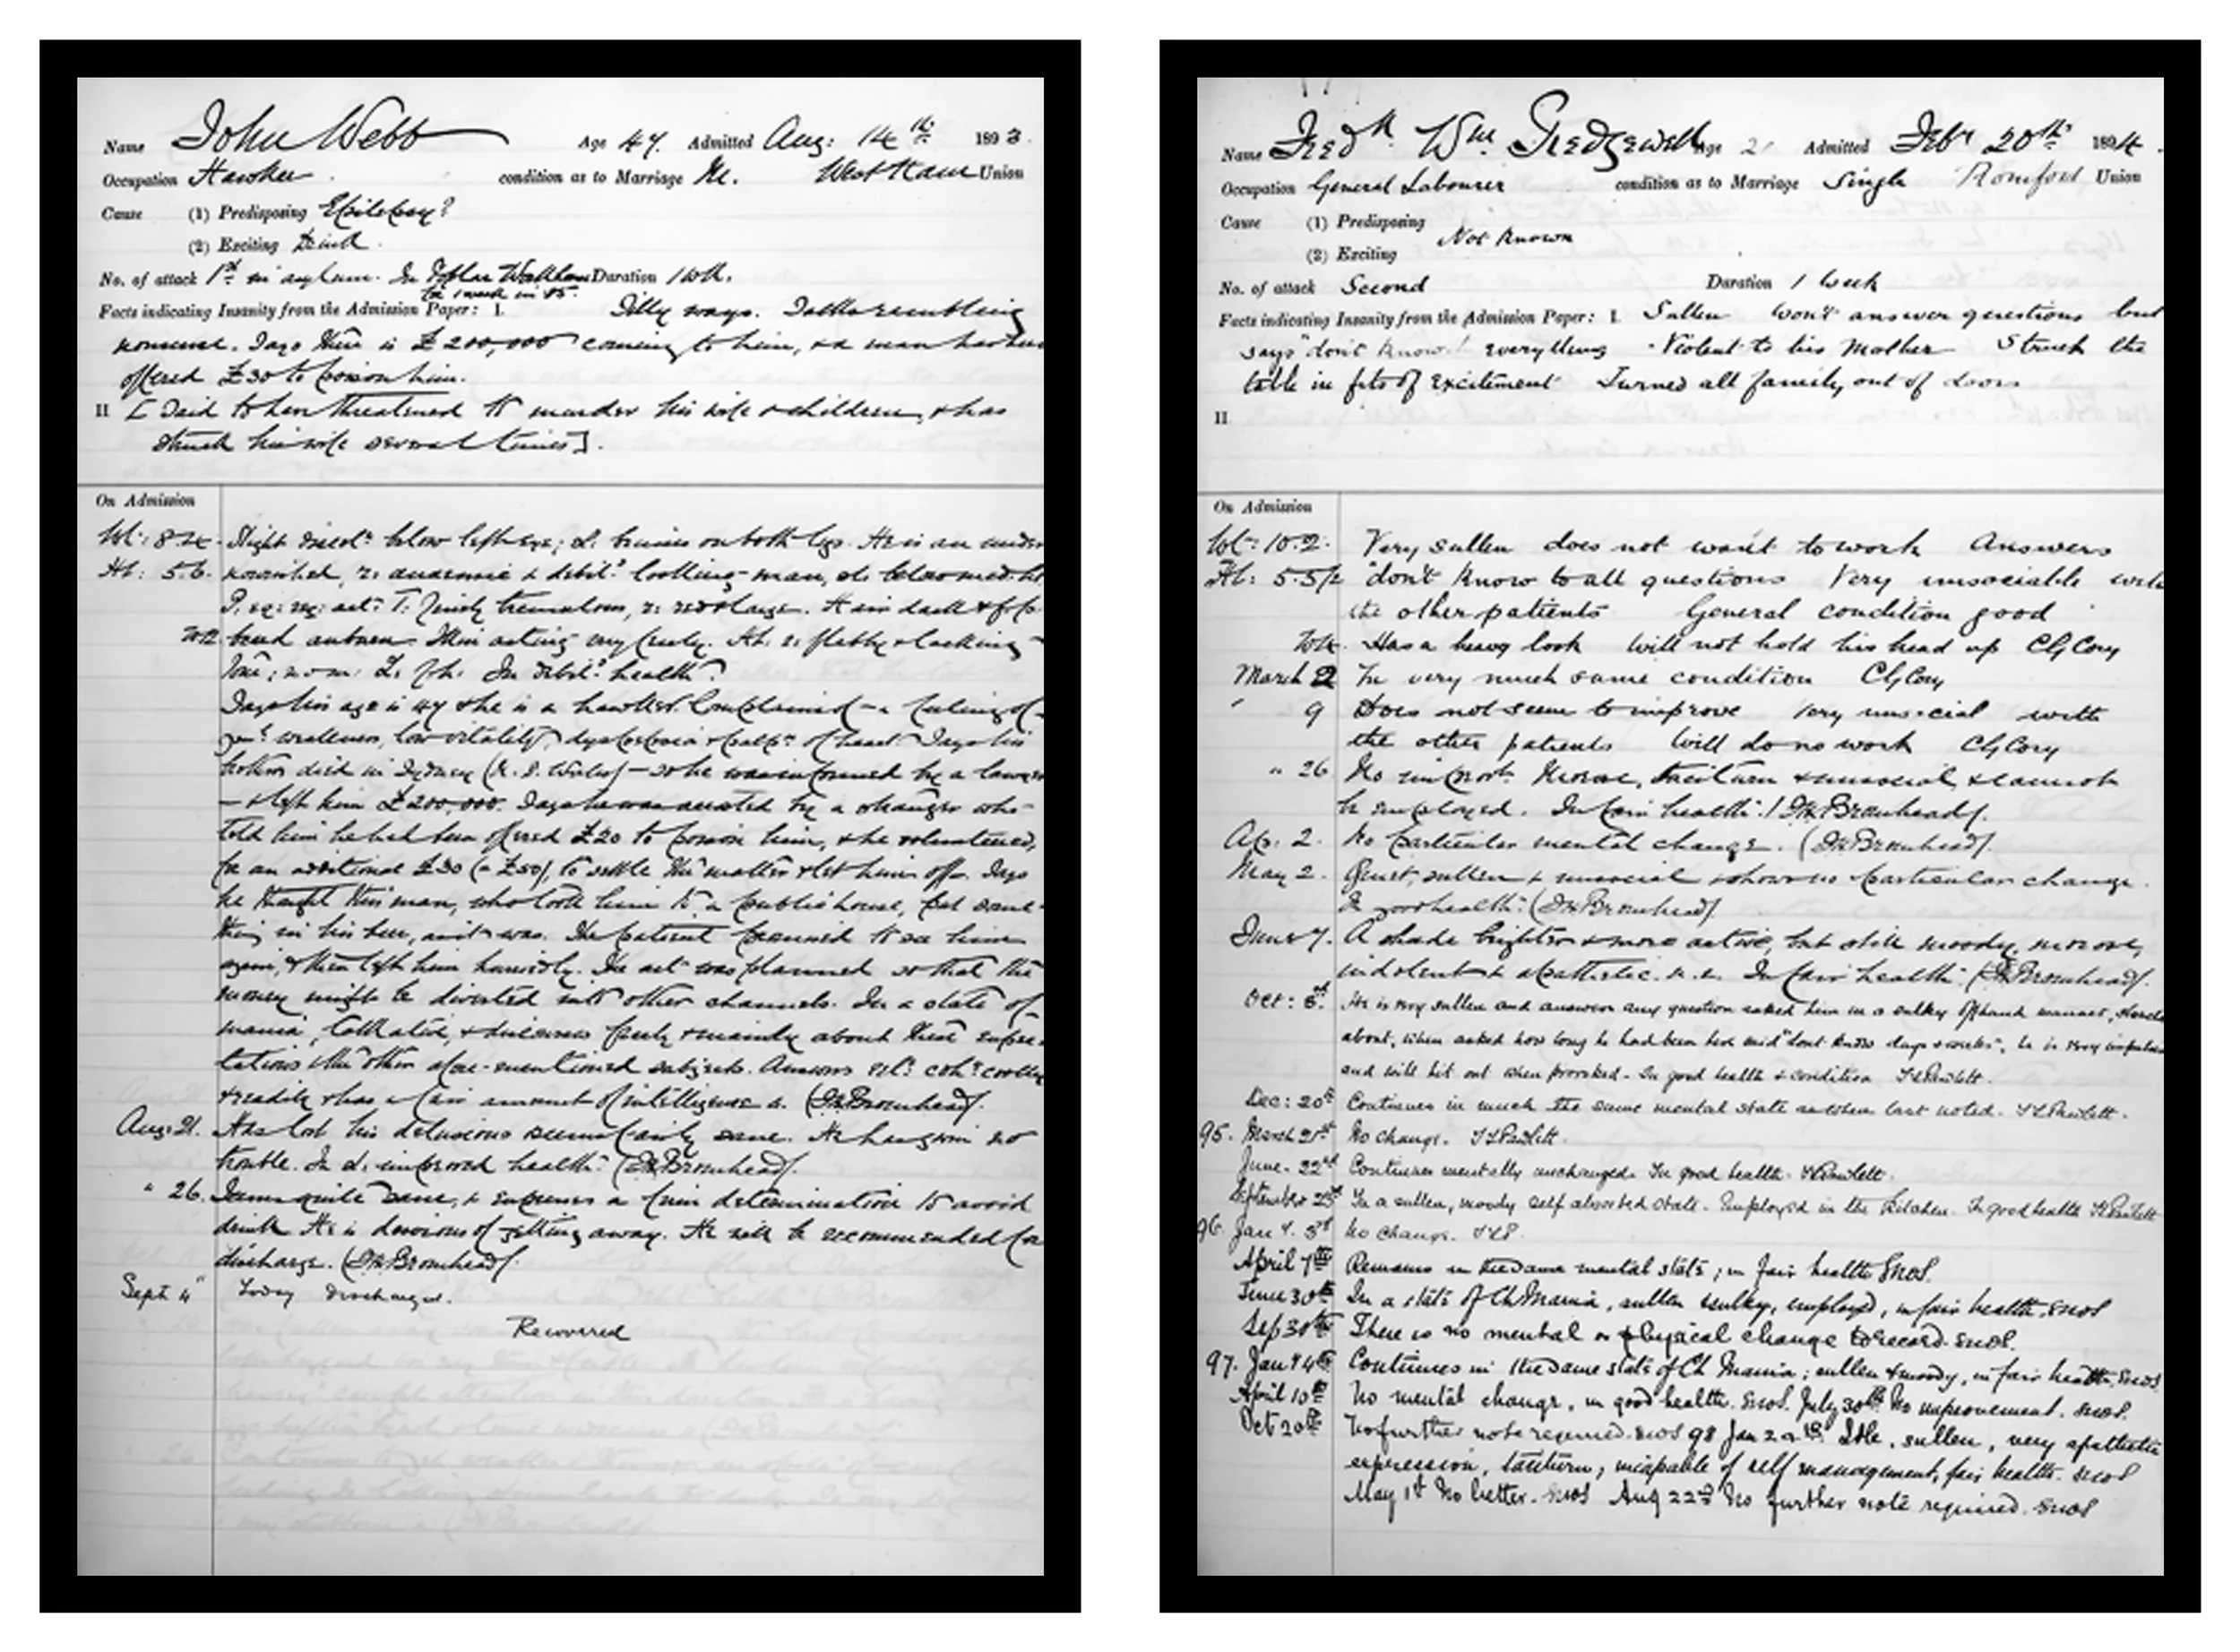 Name John Webb Age 47. Admitted Aug: 14th 1893.
Occupation Hawker. condition as to Marriage M. West Ham Union
Cause (1) Predisposing Epilepsy?
(2) Exciting Drink.
No. of attack 1st in asylum. In Poplar Duration 1 wk.
for 1 week in 85.
Facts indicating Insanity from the Admission Paper: I. Silly ways. Talks rambling
nonsense. Says there is £200,000 coming to him, & a man has been
offered £30 to poison him.
II [Said to have threatened to murder his wife & children, & has
struck his wife several times].
On Admission
Wt: 8.4. Slight below left eye; bruises on both legs. He is an under
Ht: 5.6. nourished, anaemic & debil: looking man,
T. finely tremulous,
beard auburn. acting very freely. flabby & lacking
tone; In debil: health.
Says his age is 47 & he is a hawker. Complained a feeling of
gen: weakness, low vitality, dyspepsia & palpn of heart. Says his
brother died in Sydney (N. S. Wales) — so he was informed by a lawyer
— & left him £200,000. Says he was accosted by a stranger who
told him he had been offered £20 to poison him, & he volunteered,
for an additional £30 (= £50), to settle the matter & let him off. Says
he thought this man, who took him to a public house, put some-
thing in his beer, The patient promised to see him
again, & then left him hurriedly. The act was planned so that the
money might be diverted into other channels. In a state of
mania, talkative, & discourses freely & mainly about these expec-
tations & the other afore-mentioned subjects. Answers
& readily & has a fair amount of intelligence (Dr. Bromhead).
Aug: 21. Has lost his delusions & seems fairly sane. He has given no
trouble. In improved health. (Dr. Bromhead).
" 26. Seems quite sane, & expresses a firm determination to avoid
drink. He is desirous of getting away. He will be recommended for
discharge. (Dr. Bromhead).
Sept 4" Today discharged.
Recovered
Name Fredk Wm Gredgewell Age 2 Admitted Feby 20th 1894.
Occupation General Labourer condition as to Marriage Single Romford Union
Cause (1) Predisposing
Not Known
(2) Exciting
No. of attack Second Duration 1 Week
Facts indicating Insanity from the Admission Paper: I. Sullen Won't answer questions but
says "don't know" everything Violent to his Mother Struck the
table in fits of excitement Turned all family out of doors
II
On Admission
Wt: 10.2. Very sullen does not want to work Answers
Ht: 5.5½ "don't Know to all questions Very unsociable with
the other patients General condition good
Has a heavy look Will not hold his head up CG Cory
March 2 In very much same condition CG Cory
" 9 Does not seem to improve Very unsocial with
the other patients Will do no work CG Cory
" 26 No improvt. Morose, taciturn & unsocial, & cannot
be employed. In fair health. (Dr. Bromhead).
Ap: 2. No particular mental change. (Dr. Bromhead).
May 2. Quiet, sullen & unsocial & shows no particular change.
In good health. (Dr. Bromhead).
June 7. A shade brighter & more active, but still moody, morose,
indolent & apathetic. In fair health. (Dr. Bromhead).
Oct: 6th He is very sullen and answers any question asked him in a sulky offhand manner,
about, when asked how long he had been here said "dont know days & weeks", he is very impulsive
and will hit out when provoked - In good health & condition
Dec: 20th Continues in much the same mental state as when last noted.
95. March 21st No change.
June 22nd Continues mentally unchanged. In good health.
September 23rd In a sullen, moody self absorbed state. Employed in the kitchen. In good health
96. Jany. 3rd No change.
April 7th Remains in the same mental state; in fair health
June 30th In a state of Ch Mania, sullen & sulky, employed, in fair health.
Sep 30th There is no mental or physical change to record.
97. Jany 4th Continues in the same state of Ch Mania; sullen & moody, in fair health.
April 10th No mental change, in good health. July 30th No improvement.
Oct 20th No further note required. 98 Jan Idle, sullen, very apathetic
expression, taciturn, incapable of self management, fair health.
May 1st No better. Aug 22nd No further note required.